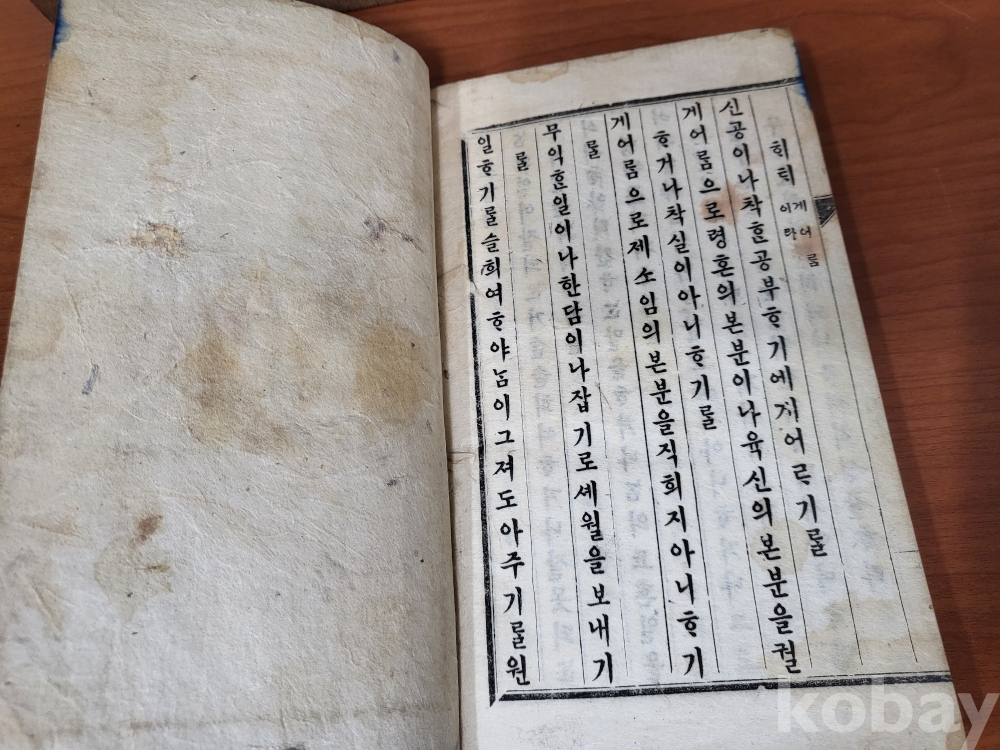 ᄒᆡᄐᆡ 게어름
이라
신공이나착ᄒᆞᆫ공부ᄒᆞ기에게어르기ᄅᆞᆯ
게어름으로령혼의본분이나육신의본분을궐
ᄒᆞ거나착실이아니ᄒᆞ기ᄅᆞᆯ
게어름으로제소임의본분을직희지아니ᄒᆞ기
ᄅᆞᆯ
무익ᄒᆞᆫ일이나한담이나잡기로셰월을보내기
ᄅᆞᆯ
일ᄒᆞ기ᄅᆞᆯ슬희여ᄒᆞ야ᄂᆞᆷ이그져도아주기ᄅᆞᆯ원
kobay